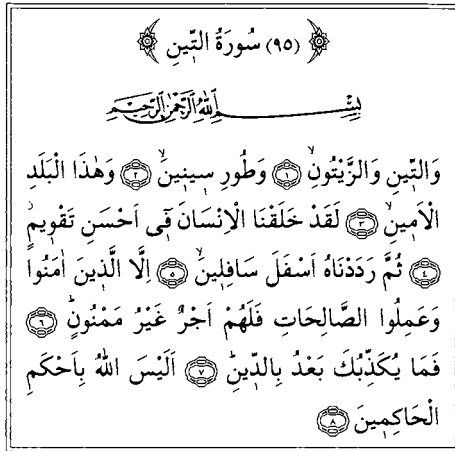 ﴿(٩٥) سُورَةُ التّ۪ينِ﴾
بِسْمِ اللّٰهِ الرَّحْمٰنِ الرَّح۪يمِ
وَالتّ۪ينِ وَالزَّيْتُونِۙ ﴿١﴾ وَطُورِ س۪ين۪ينَۙ ﴿٢﴾ وَهٰذَا الْبَلَدِ
الْاَم۪ينِۙ ﴿٣﴾ لَقَدْ خَلَقْنَا الْاِنْسَانَ ف۪ٓي اَحْسَنِ تَقْو۪يمٍۘ
﴿٤﴾ ثُمَّ رَدَدْنَاهُ اَسْفَلَ سَافِل۪ينَۙ ﴿٥﴾ اِلَّا الَّذ۪ينَ اٰمَنُوا
وَعَمِلُوا الصَّالِحَاتِ فَلَهُمْ اَجْرٌ غَيْرُ مَمْنُونٍۜ ﴿٦﴾
فَمَا يُكَذِّبُكَ بَعْدُ بِالدّ۪ينِۜ ﴿٧﴾ اَلَيْسَ اللّٰهُ بِاَحْكَمِ
الْحَاكِم۪ينَ ﴿٨﴾